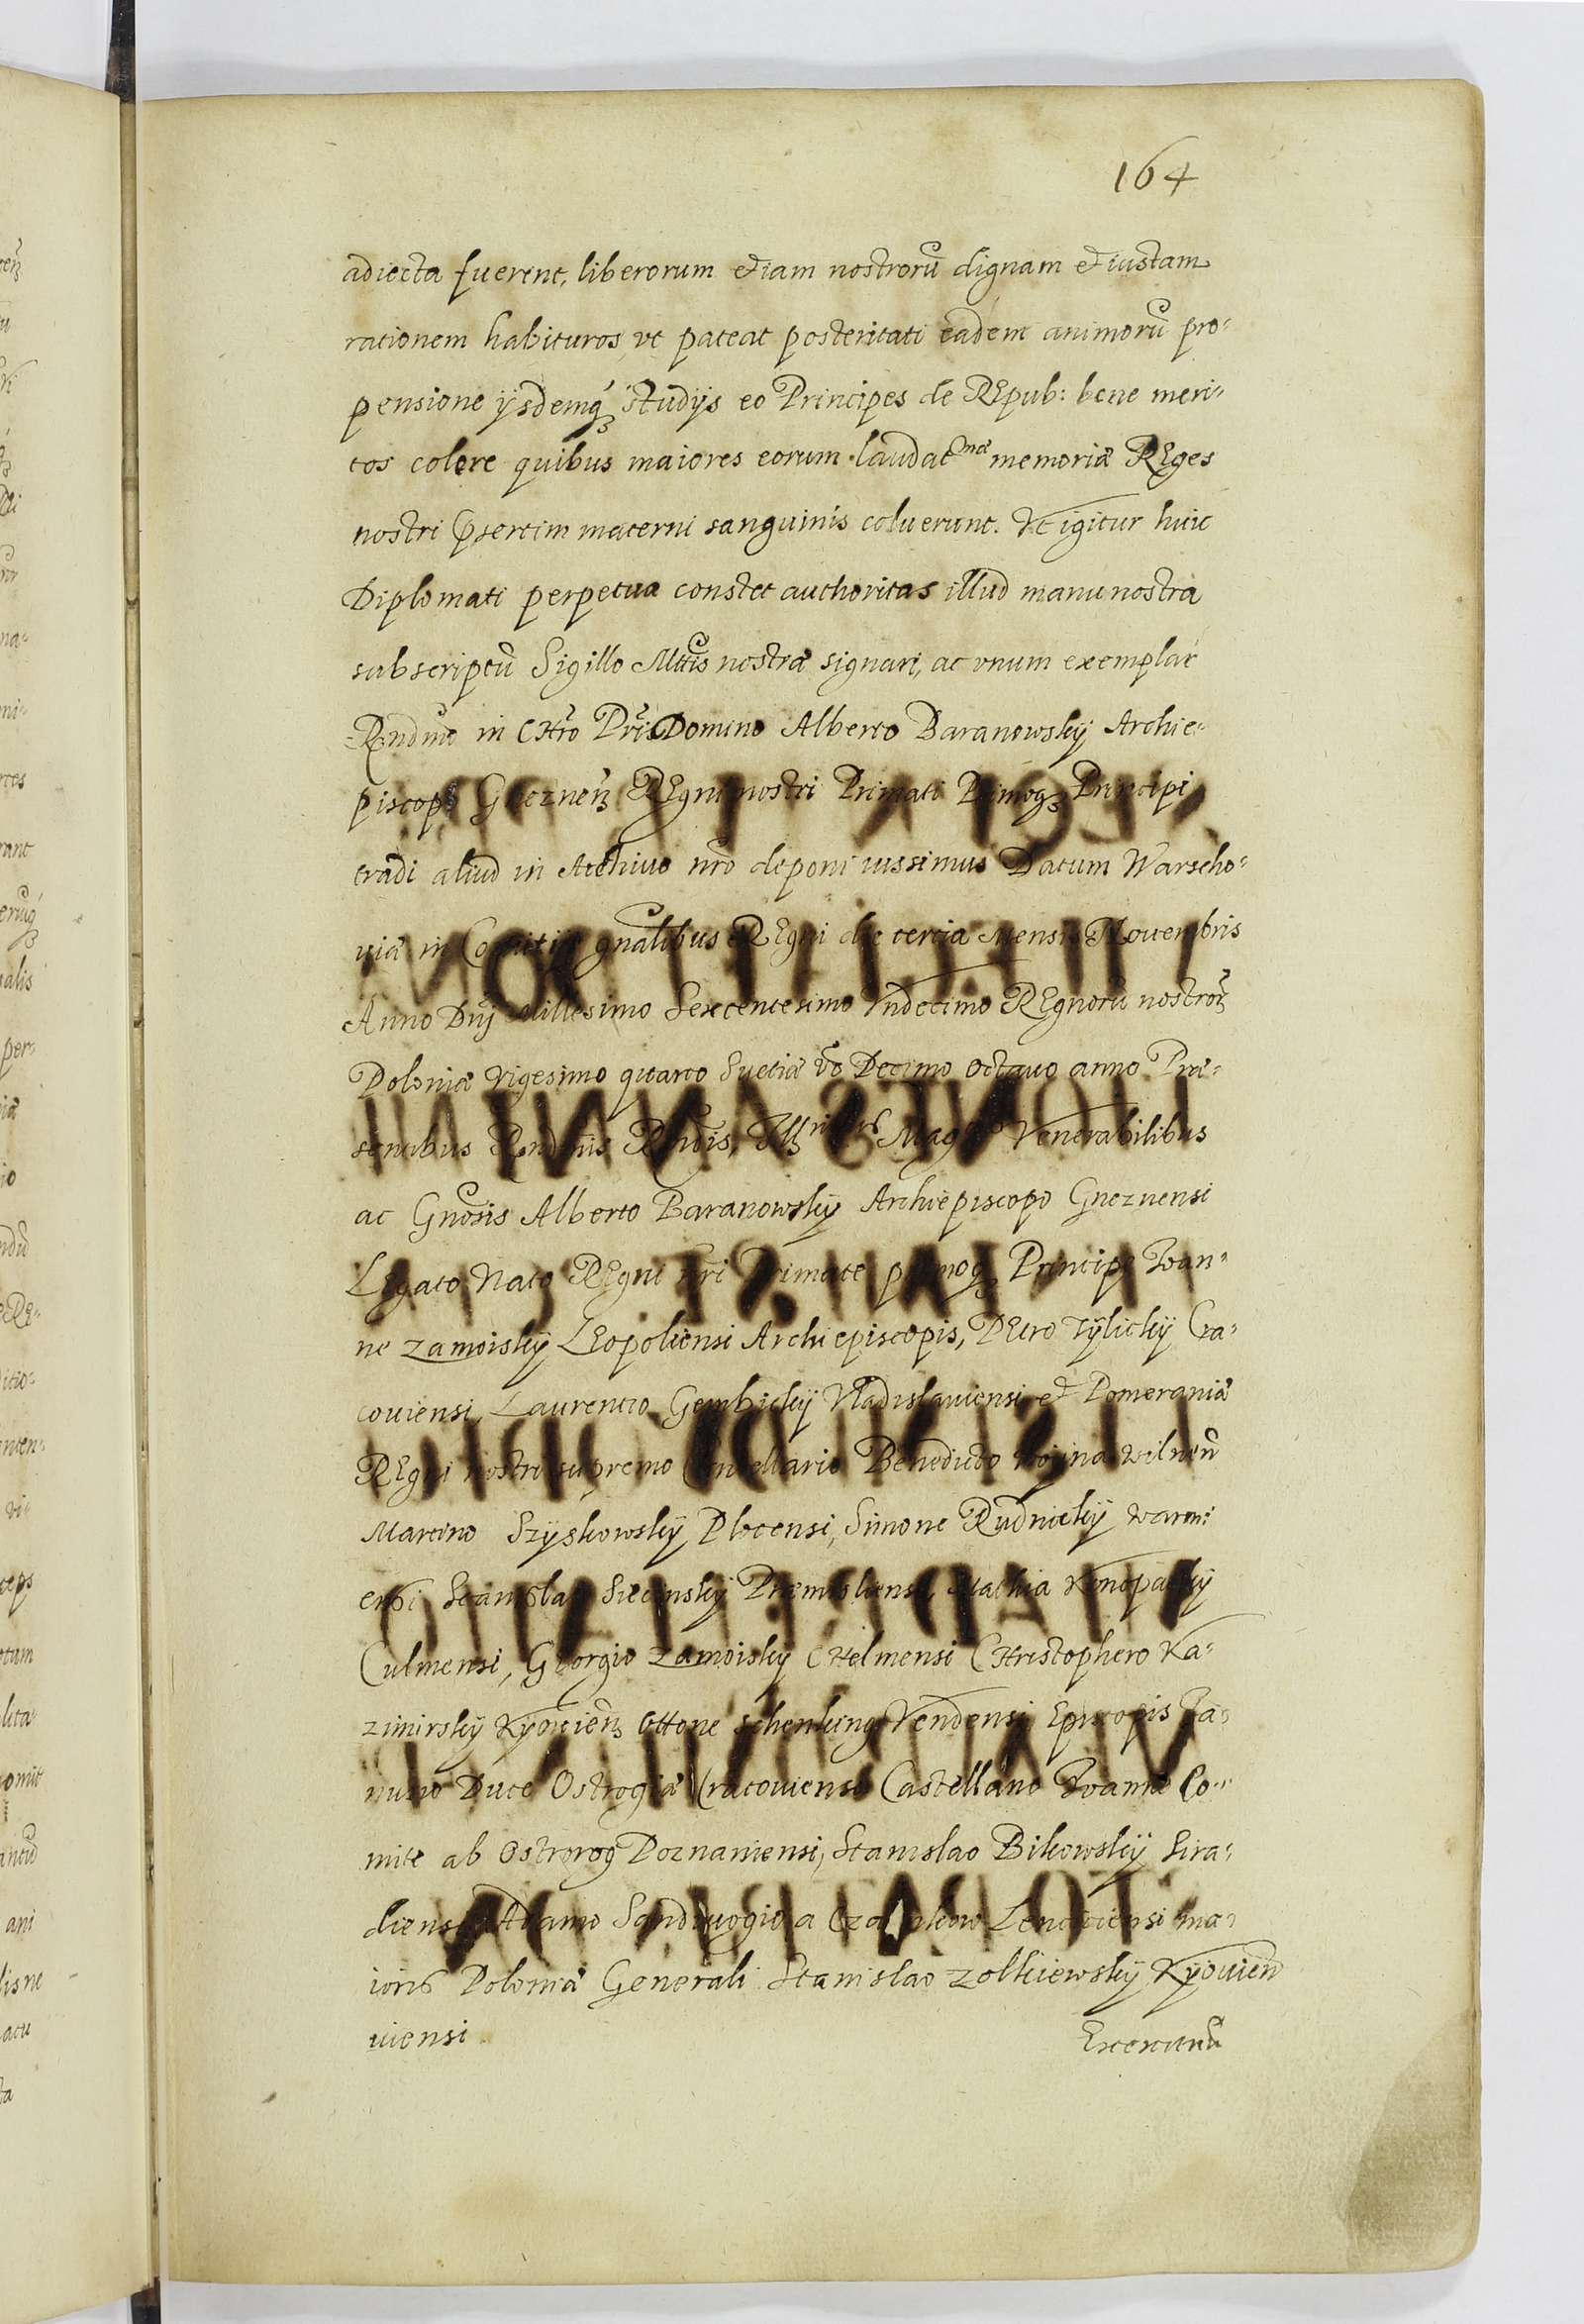 164
adiecta fuerint, liberorum etiam nostrorū dignam et iustam
rationem habituros, vt pateat posteritati eadem animorū pro-
pensione ijsdemq́ studijs eo Principes de REpub: bene meri-
tos colere quibus maiores eorum laudatmæ memoriæ REges
nostri p̃sertim materni sanguinis coluerunt. Vt igitur huic
Diplomati perpetua constet authoritas illud manu nostra
subscriptū Sigillo Mttis nostræ signari, ac vnum exemplar
Rndmo in CHro Pri Domino Alberto Baranowskÿ Archie-
piscopo Gneznen REgni nostri Primati Primoq Principi
tradi aliud in Archiuo nro deponi iussimus Datum Warscho-
uiæ in Comitijs gnalibus REgni die tertia Mensis Nouembris
Anno Dnj Millesimo Sexcentesimo Vndecimo REgnorū nostror
Poloniæ Vigesimo quarto Suetiæ vo Decimo octauo anno Præ-
sentibus Rndmis Rndis, Illribus Magcis Venerabilibus
ac Gnosis Alberto Baranowskÿ Archiepiscopo Gneznensi
LEgato Nato REgni nri Primate primoq Principe Ioan-
ne Zamoiskÿ LEopoliensi Archiepiscopis, PEtro Tÿlickÿ Cra-
couiensi, Laurentio Gembickÿ Vladislauiensi et Pomeraniæ
REgni nostri supremo Cancellario Benedicto Woÿna Wilnen
Martino Szÿskowskÿ Plocensi, Simone Rudnickÿ Warmi
ensi Stanislao Siecinskÿ Præmisliensi, Mathia Konopackÿ
Culmensi, GEorgio Zamoiskÿ CHelmensi CHristophero Ka-
zimirskÿ Kÿouien Ottone Schenking Vendensi Episcopis Ia-
nusio Duce Ostrogiæ Cracouiensi Castellano Ioanne Co-
mite ab Ostrorog Poznaniensi, Stanislao Bikowskÿ Sira-
diensi Adamo Sandiuogio a Czarnkow Lenciciensi ma-
ioris Poloniæ Generali Stanislao Zolkiewskÿ Kÿouien
uiensi
Exercituū